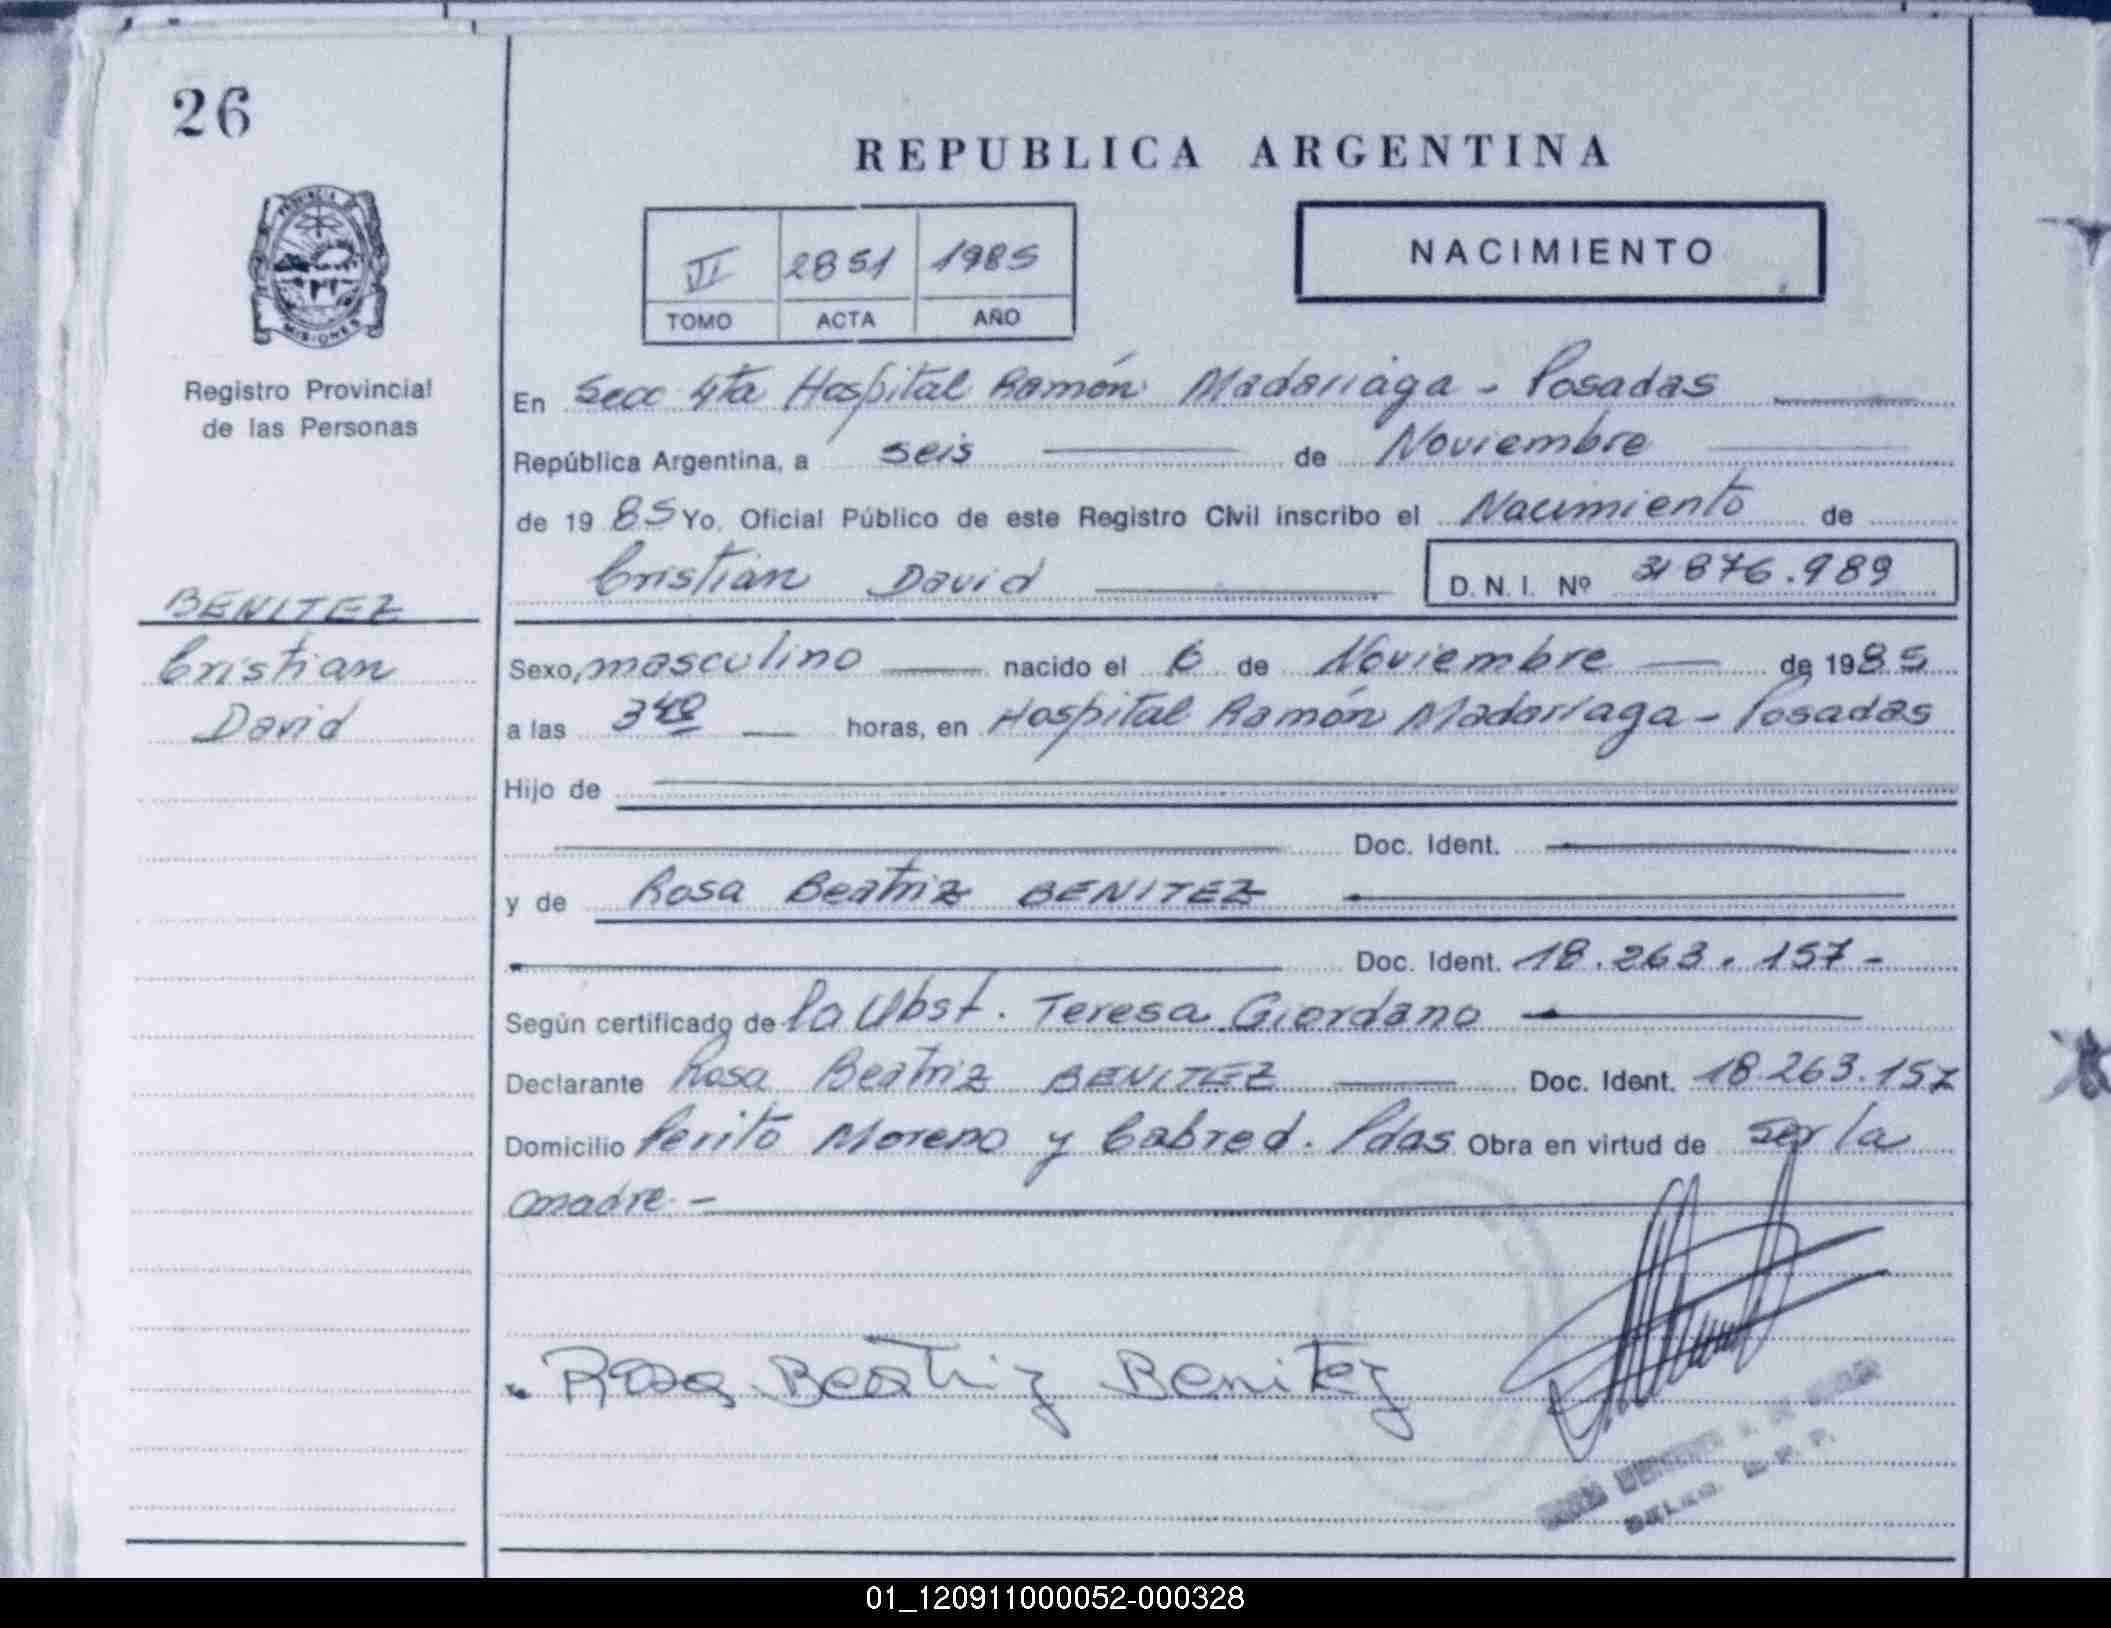 26
REPUBLICA ARGENTINA
VI 2851 1985
TOMO ACTA AÑO
NACIMIENTO
PROVINCIA DE
MISIONES
Registro Provincial
de las Personas
BENITEZ
Cristian
David
En Secc 4ta Hospital Ramón Madariaga - Posadas
República Argentina, a seis de Noviembre
de 19 85 Yo, Oficial Público de este Registro Civil inscribo el Nacimiento de
Cristian David D. N. I. Nº 31876.989
Sexo, masculino nacido el 6 de Noviembre de 1985
a las 3 40 horas, en Hospital Ramón Madariaga - Posadas
Hijo de
Doc. Ident.
y de Rosa Beatriz BENITEZ
Doc. Ident. 18.263.157-
Según certificado de la Obst. Teresa Giordano
Declarante Rosa Beatriz BENITEZ Doc. Ident. 18.263.157
Domicilio Perito Moreno y Cabred. Pdas Obra en virtud de ser la
madre -
Rosa Beatriz Benitez
01_120911000052-000328